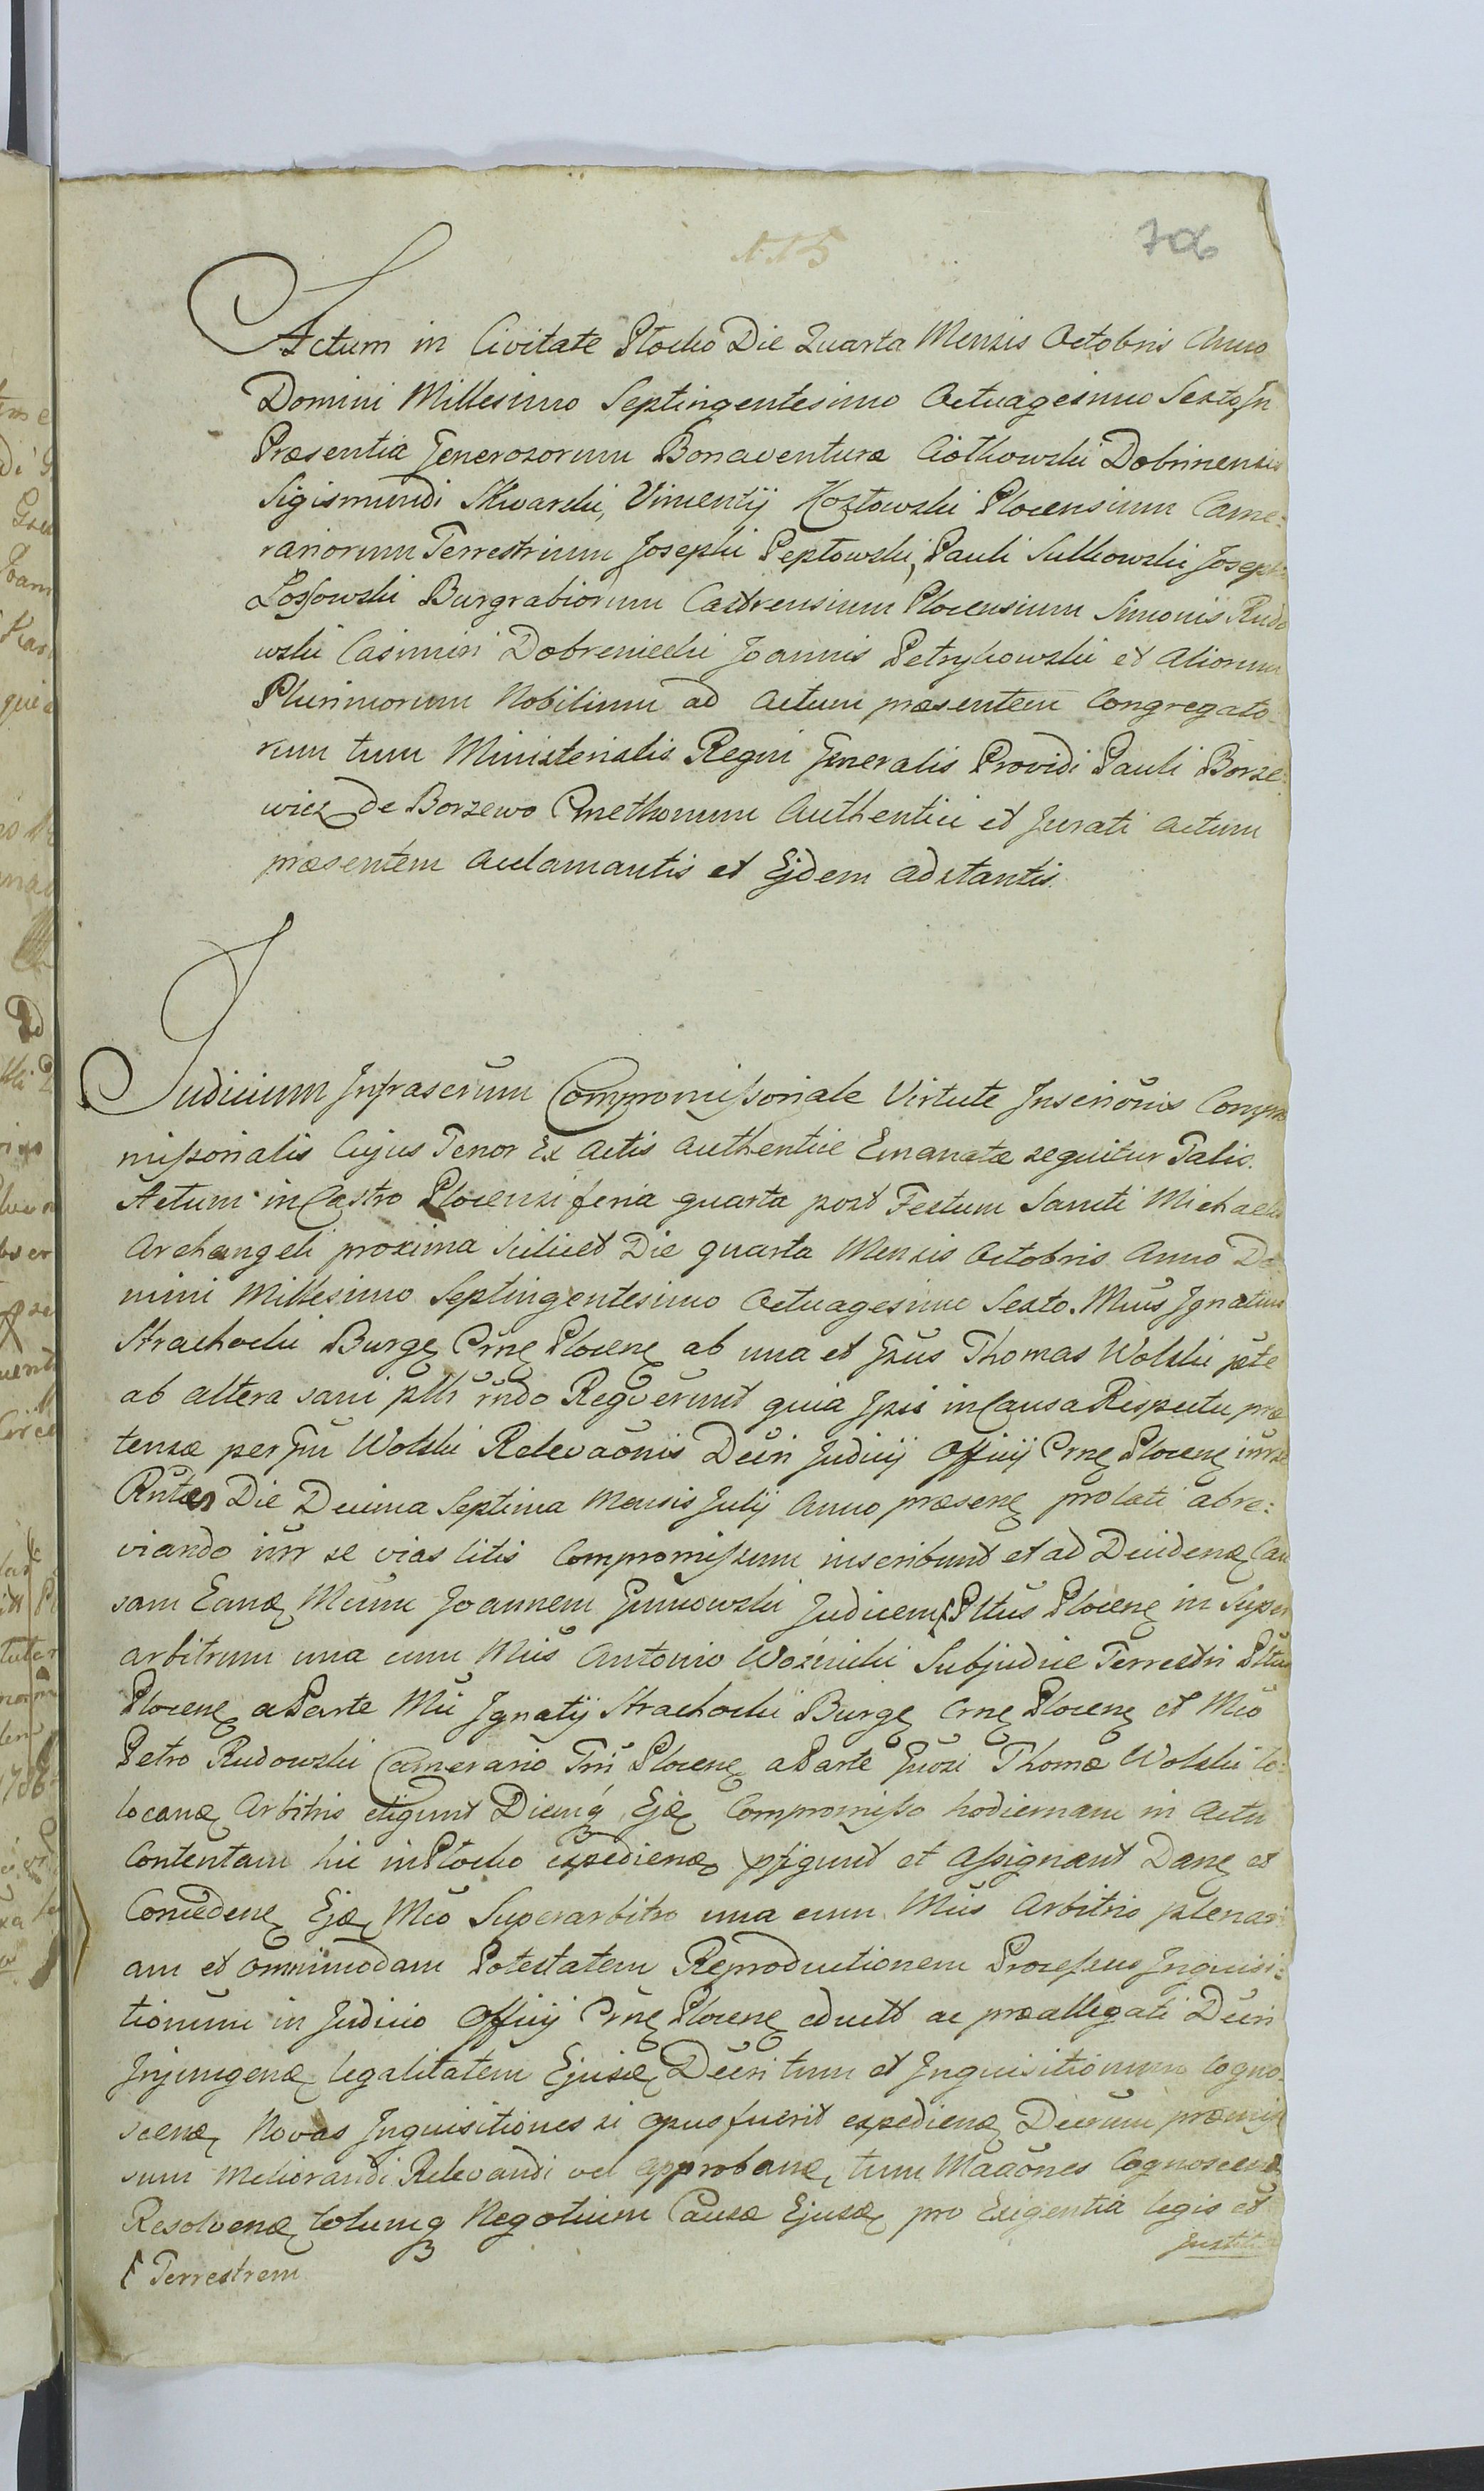 706
Actum in Civitate Plocko Die Quarta Mensis Octobris Anno
Domini Millesimo Septingentesimo Octuagesimo Sexto, In
Præsentia Generosorum Bonaventuræ Ciołkowski Dobrinensis
Sigismundi Skwarski, Vincentij Kozłowski Plocensium Came:
rariorum Terrestrium Josephi Pepłowski, Pauli Sulkowski Josephi
Lossowski Burgrabiorum Castrensium Plocensium Simonis Rudo
wski Casimiri Dobreniecki Joannis Petrykowski et Aliorum
Plurimorum Nobilium ad Actum præsentem Congregato
rum tum Ministerialis Regni Generalis Providi Pauli Borze:
wicz de Borzewo Cmethonum Authentici et Jurati Actum
præsentem Acclamantis et Ejdem adstantis.
Judicium Infrascrum Compromissoriale Virtute Inscriōnis Compro
missorialis Cujus Tenor Ex Actis Authentice Emanatæ sequitur Talis.
Actum in Castro Plocensi feria quarta post Festum Sancti Michaelis
Archangeli proxima scilicet Die quarta Mensis Octobris Anno Do
mini Millesimo Septingentesimo Octuagesimo Sexto. Mcus Ignatius
Strachocki Burg Crn Plocen ab una et Gsus Thomas Wolski pte
ab altera sani plh rndo Reqverunt quia Ipsi in Causa Respectu præ
tensæ per Gm Wolski Relevaōnis Decri Judicij Officij Crn Plocen inr se
Die Decima Septima Mensis Julij Anno præsen prolati abre:
viando inr se vias litis Compromissum inscribunt et ad Deciden Cau
sam Ean Mcum Joannem Gumowski Judicem Pltus Plocen in Super
arbitrum una cum Mcis Antonio Woźnicki Subjudice Terrestri Pltus
Plocen a Parte Mci Ignatij Strachocki Burg Crn Plocen et Mco
Petro Rudowski Camerario Trri Plocen a Parte Gnosi Thomæ Wolski co:
locan Arbitris eligunt Diemq Ejd Compromisso hodiernam in Actu
Contentam hic in Plocko expedien pfigunt et assignant Dan et
Conceden Ejd Mco Superarbitro una cum Mcis Arbitris plenari
am et omnimodam Potestatem Reproductionem Processus Inquisi:
tionum in Judicio Officij Crn Plocen educt ac præallegati Decri
Injungen legalitatem Ejusd Decri tum et Inquisitionum Cogno
scen Novas Inquisitiones si opus fuerit expedien Decrum præmis
sum Meliorandi Relevandi vel approban, tum Cognoscen
Resolven totumq Negotium Causæ Ejusd pro Exigentia legis et
Justitiæ
Terrestrem